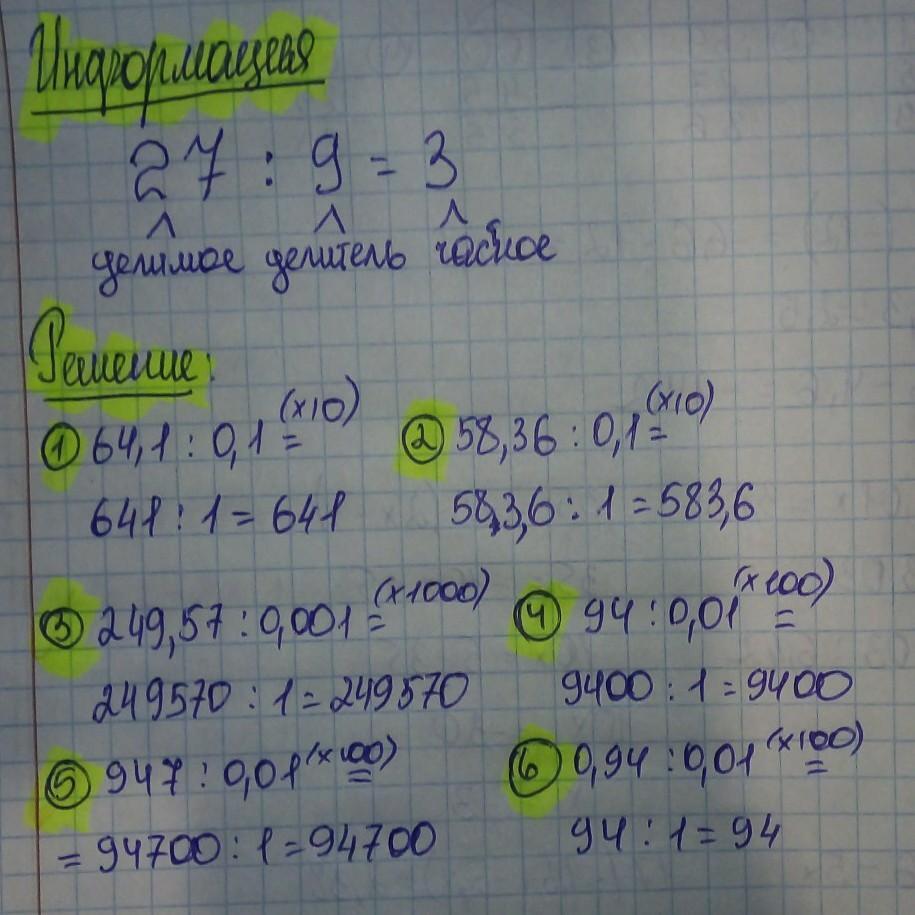 Информация
27 : 9 = 3
делимое делитель частное
Решение:
① 64,1 : 0,1 (x10) =
641 : 1 = 641
② 58,36 : 0,1 (x10) =
58,3,6 : 1 = 583,6
③ 249,57 : 0,001 (x1000) =
249570 : 1 = 249570
④ 94 : 0,01 (x100) =
9400 : 1 = 9400
⑤ 947 : 0,01 (x100) =
= 94700 : 1 = 94700
⑥ 0,94 : 0,01 (x100) =
94 : 1 = 94